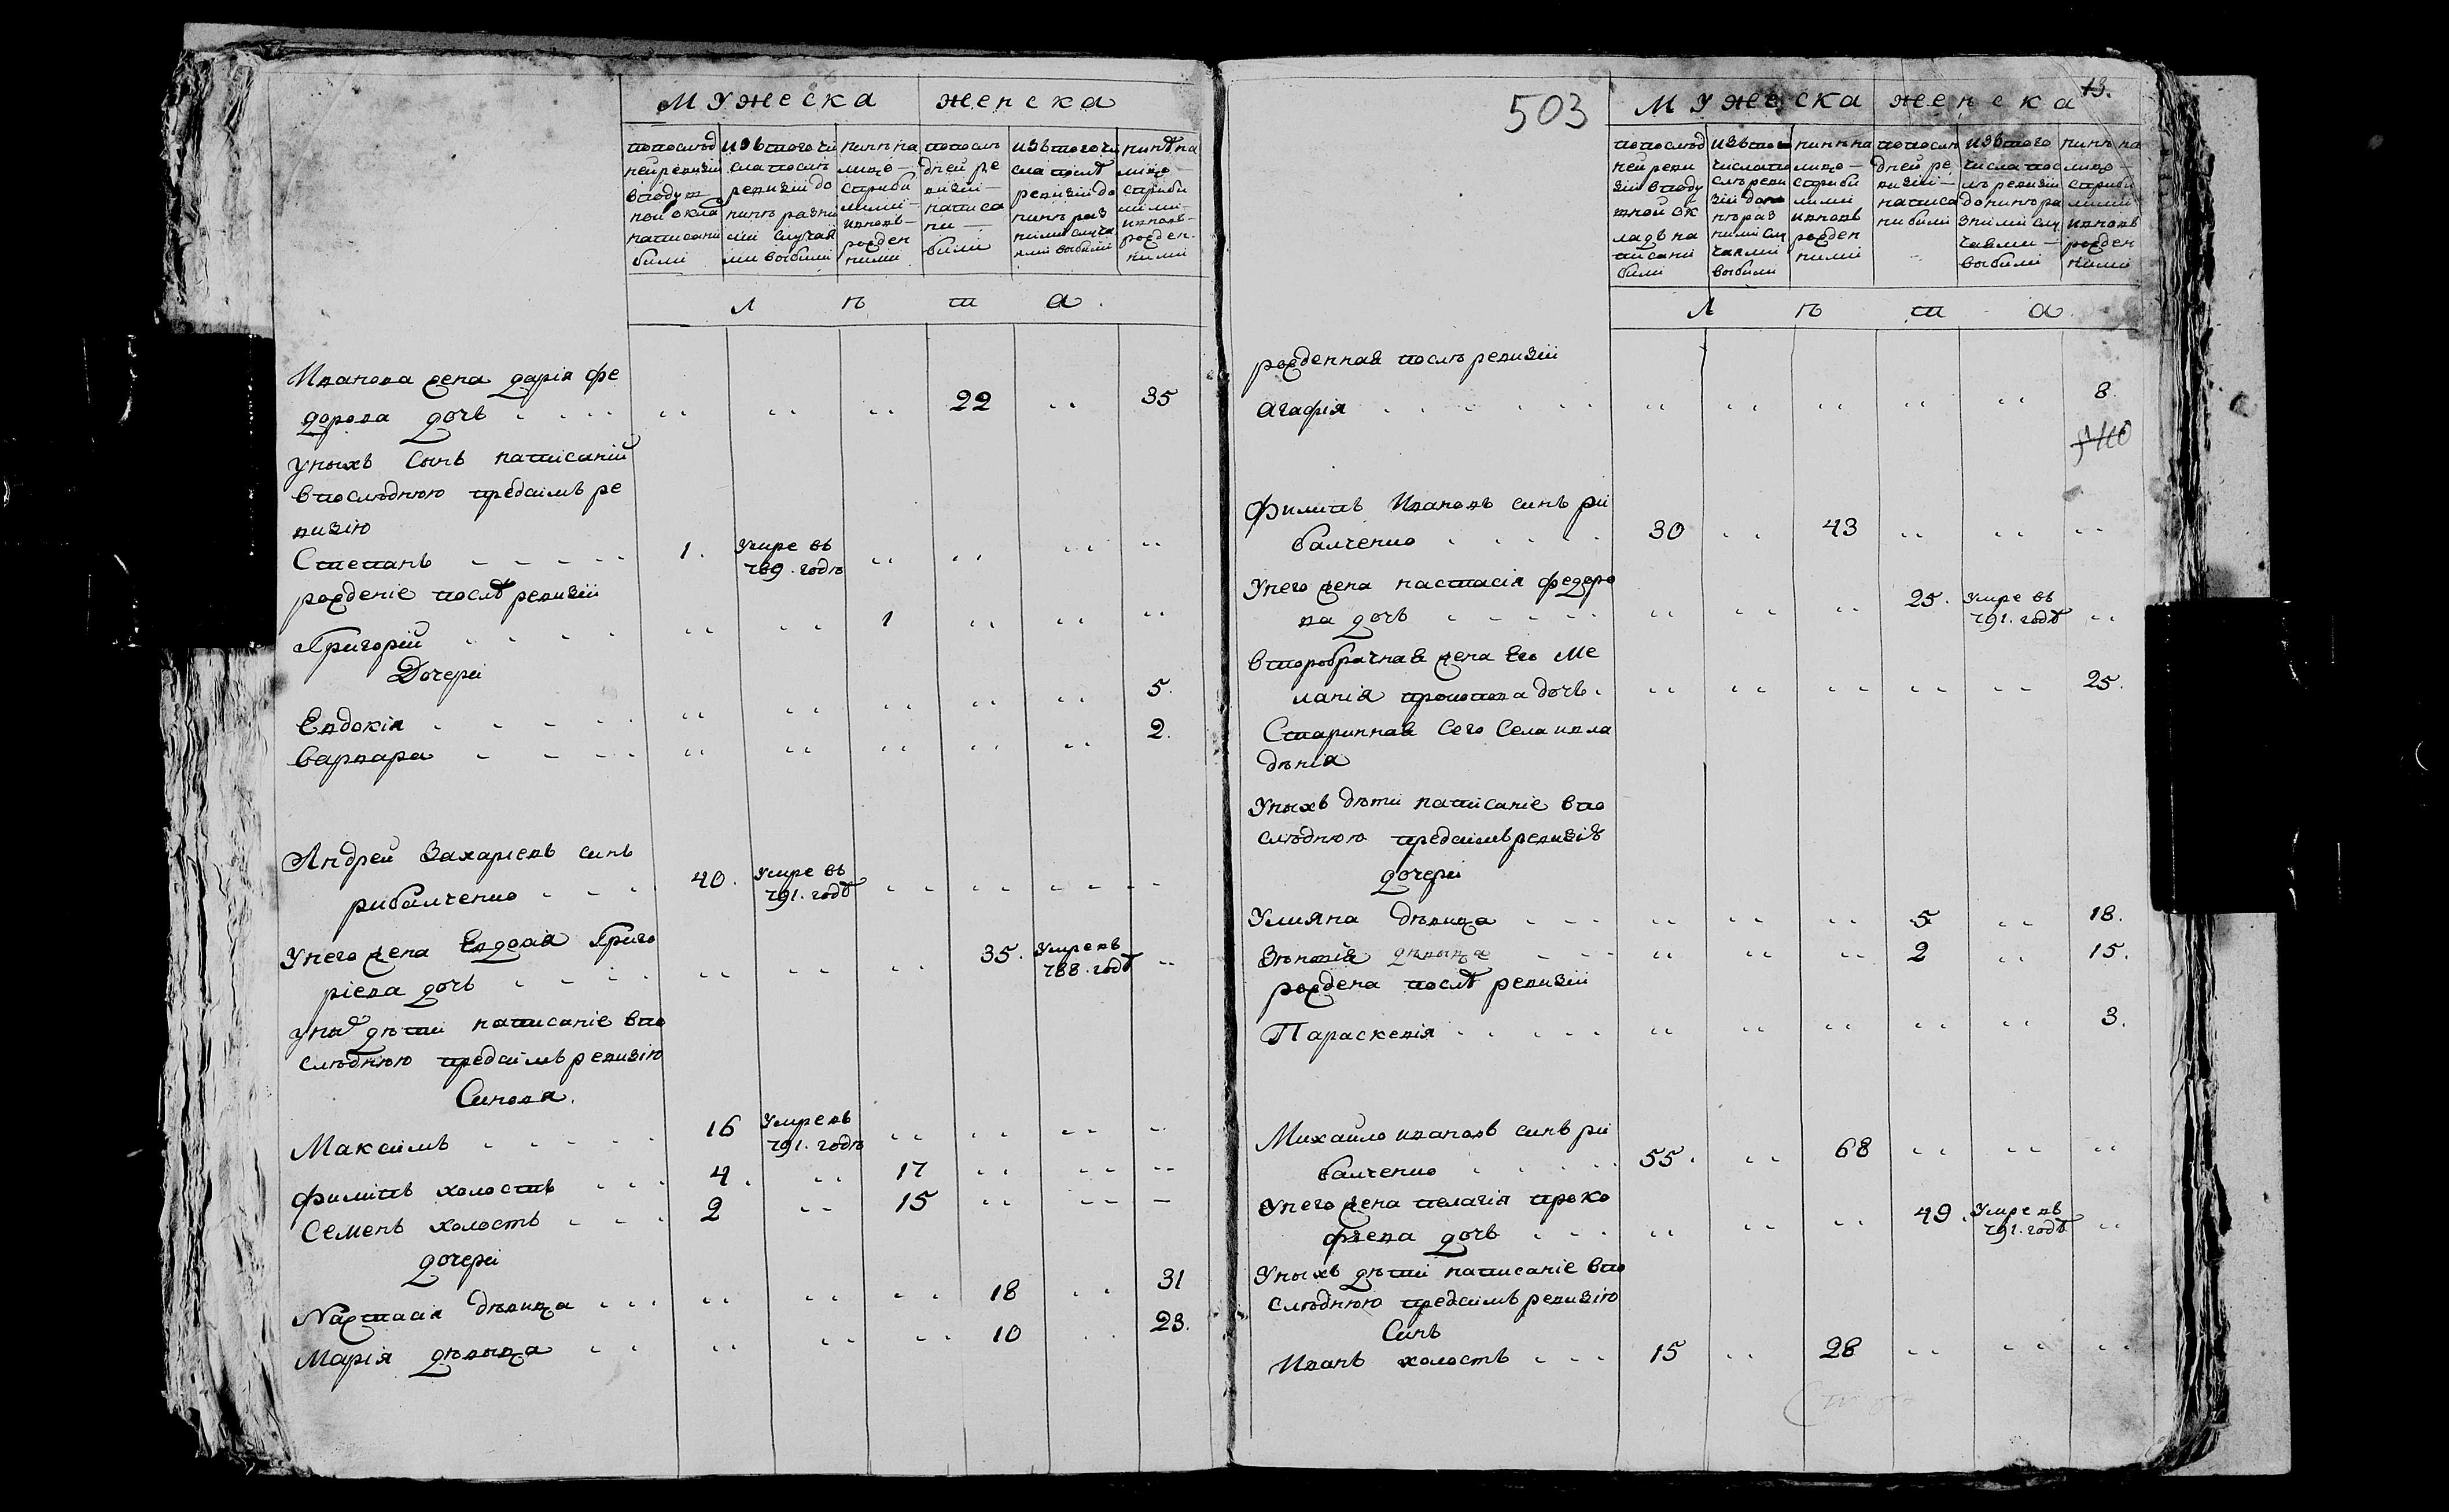 Мужеска женска
попослѣд
ней ревизіи
вподуш
ной окла
написани
были
изътого чи
сла послѣ
ревизіи до
нинѣ разни
ми случая
ми выбыли
нинѣ на
лицо
сприбы
лыми
ивновь
рожден
ними
попослѣ
дней ре
визіи
написа
ни
были
изътого чи
сла послѣ
ревизіи до
нинѣ раз
ними случа
ями выбыли
нинѣ на
лицо
сприбы
лыми
ивновь
рожден
ними
л ѣ т а
Иванова жена дарія фе
дорова дочь 22 35
уныхъ сынъ написаній
впослѣднюю предсимъ ре
визію
Степанъ 1. Умре въ
789. годѣ
рожденіе послѣ ревизіи
Григорій 1
Дочери
Евдокія 5.
Варвара 2.
Андрей Захаріевъ синъ
рибалченко 40. Умре въ
791. годѣ
Унего жена Григо
ріева дочь 35. Умре въ
788. годѣ
дѣти написаніе впо
слѣднюю предсимъ ревизію
Синовя.
Максимъ 16 Умре въ
791. годѣ
филипъ холостъ 4. 17
Семенъ холостъ 2 15
дочери
Настасія дѣвица 18 31
Марія дѣвица 10 23.
503
13.
Мужеска женска
попослѣд
ней реви
зіи вподу
шной ок
ладъ на
писани
были
изътого
числа по
слѣ реви
зіи до ни
нѣ раз
ними слу
чаями
выбыли
нинѣ на
лицо
сприбы
лыми
ивновь
рожден
ними
попослѣ
дней ре
визіи
написа
ни были
изътого
числа пос
лѣ ревизіи
до нинѣ ра
зними слу
чаями
выбыли
нинѣ на
лицо
сприбы
лыми
ивновь
рожден
ними
л ѣ т а
рожденная послѣ ревизіи
Агафія 8.
филипъ Ивановъ синъ ри
балченко 30 43
Унего жена настасія федоро
ва дочь 25. Умре въ
791. годѣ
второбрачная жена его Ме
ланія дочь. 25.
Старинная сего села ивла
дѣнія
Уныхъ дѣти написаніе впо
слѣднюю предсимъ ревизію
дочери
Улияна дѣвица 5 18.
дѣвица 2 15.
рождена послѣ ревизіи
Параскевія 3.
Михайло ивановъ синъ ри
балченко 55. 68
Унего жена пелагія проко
фіева дочь 49. Умре въ
791. годѣ
Уныхъ дѣти написаніе впо
слѣднюю предсимъ ревизію
Синъ
Иванъ холостъ 15 28